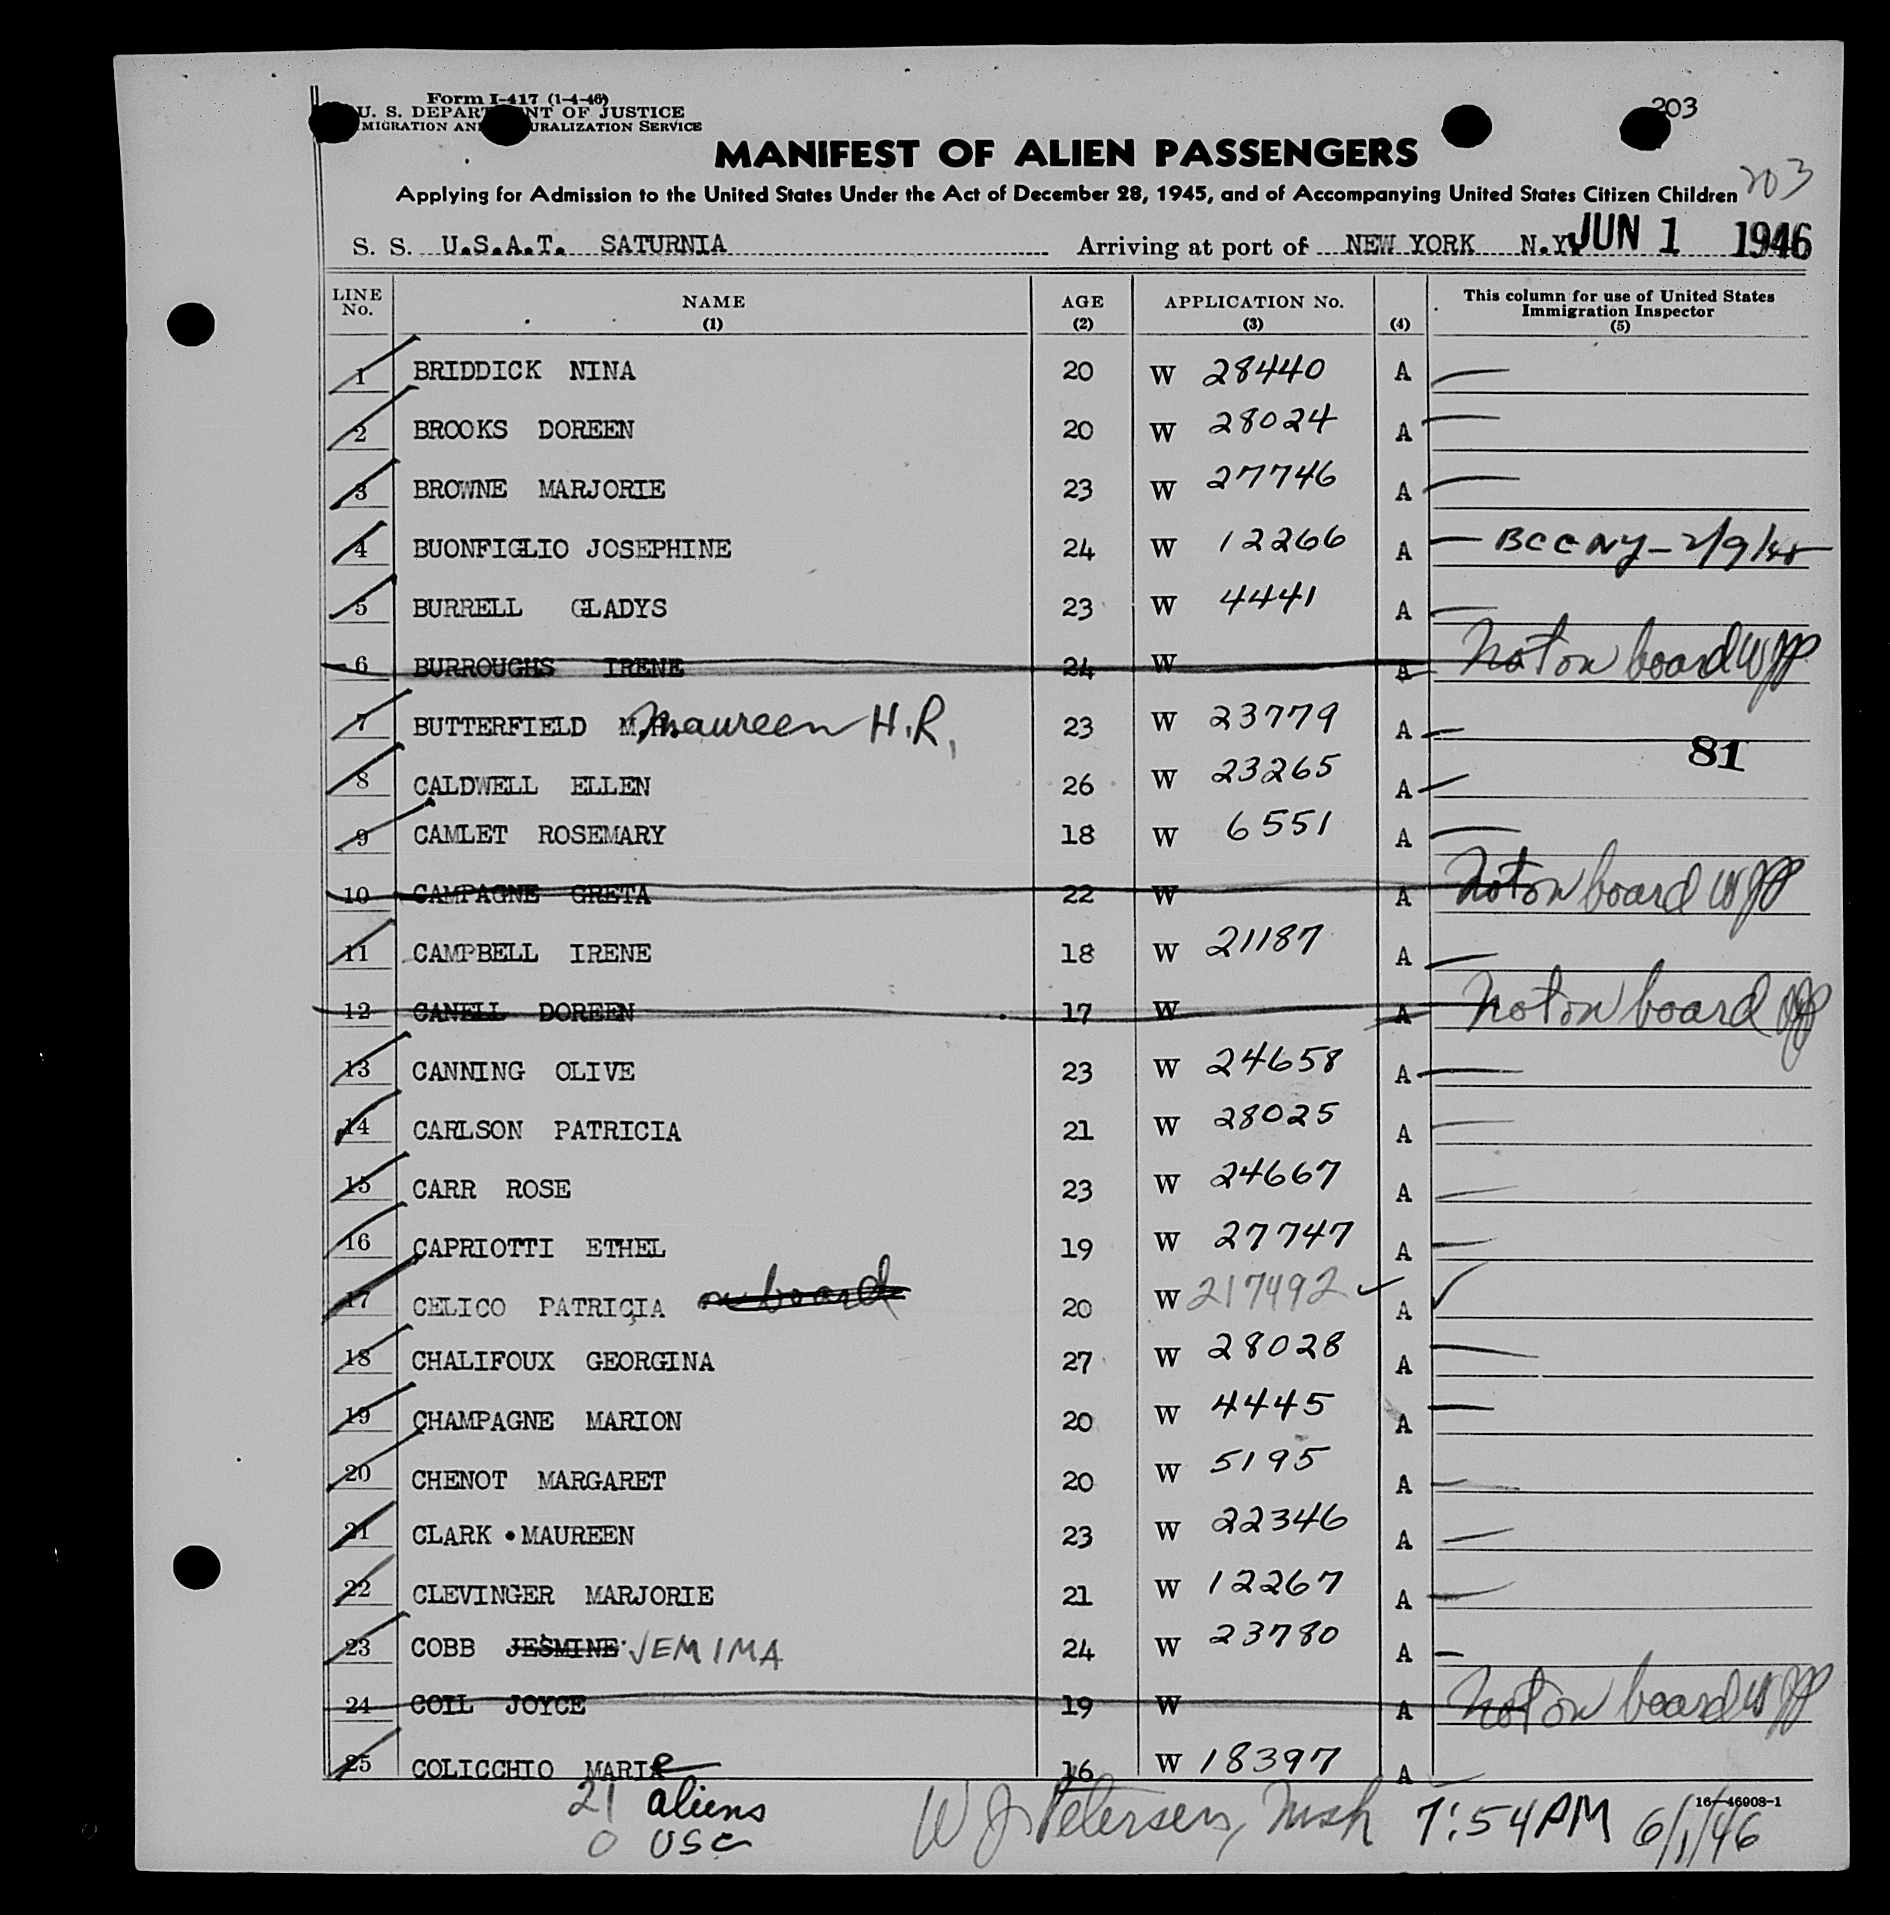 Form I-417 (1-4-46)
U. S. DEPARTMENT OF JUSTICE
IMMIGRATION AND NATURALIZATION SERVICE
203
MANIFEST OF ALIEN PASSENGERS
Applying for Admission to the United States Under the Act of December 28, 1945, and of Accompanying United States Citizen Children 203
S. S. U.S.A.T. SATURNIA Arriving at port of NEW YORK N.Y. JUN 1 1946
LINE No. NAME (1) AGE (2) APPLICATION No. (3) (4) This column for use of United States Immigration Inspector (5)
1 BRIDDICK NINA 20 W 28440 A
2 BROOKS DOREEN 20 W 28024 A
3 BROWNE MARJORIE 23 W 27746 A
4 BUONFIGLIO JOSEPHINE 24 W 12266 A — BCC NY - 2/9/48
5 BURRELL GLADYS 23 W 4441 A
6 BURROUGHS IRENE 24 W A Not on board WJP
7 BUTTERFIELD M.H. Maureen H.R. 23 W 23779 A
81
8 CALDWELL ELLEN 26 W 23265 A
9 CAMLET ROSEMARY 18 W 6551 A
10 CAMPAGNE GRETA 22 W A Not on board WJP
11 CAMPBELL IRENE 18 W 21187 A
12 CANELL DOREEN 17 W A Not on board WJP
13 CANNING OLIVE 23 W 24658 A
14 CARLSON PATRICIA 21 W 28025 A
15 CARR ROSE 23 W 24667 A
16 CAPRIOTTI ETHEL 19 W 27747 A
17 CELICO PATRICIA on board 20 W 217492 ✓ A ✓
18 CHALIFOUX GEORGINA 27 W 28028 A
19 CHAMPAGNE MARION 20 W 4445 A
20 CHENOT MARGARET 20 W 5195 A
21 CLARK MAUREEN 23 W 22346 A
22 CLEVINGER MARJORIE 21 W 12267 A
23 COBB JESMINE JEMIMA 24 W 23780 A
24 COIL JOYCE 19 W A Not on board WJP
25 COLICCHIO MARIE 16 W 18397 A
21 aliens W J Petersen, 7:54 PM 6/1/46
16—46908-1
0 USC